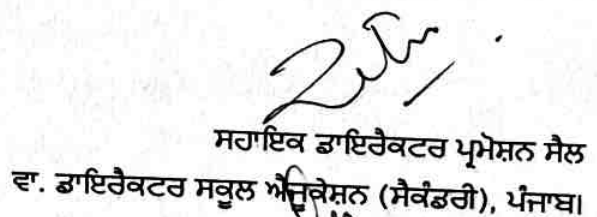 ਸਹਾਇਕ ਡਾਇਰੈਕਟਰ ਪ੍ਰਮੋਸ਼ਨ ਸੈਲ
ਵਾ. ਡਾਇਰੈਕਟਰ ਸਕੂਲ ਐਜੂਕੇਸ਼ਨ (ਸੈਕੰਡਰੀ), ਪੰਜਾਬ।